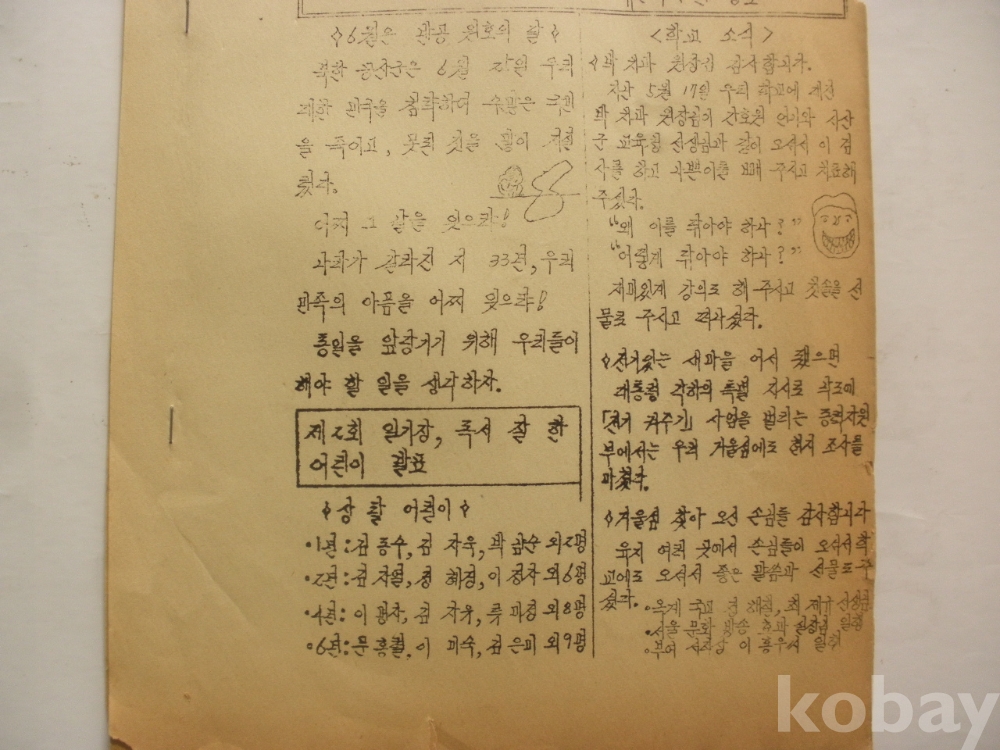 ◊6월은 원호의 달◊
북한 공산군은 6월 25일 우리
대한민국을 침략하여 수많은 국민
을 죽이고, 못된 짓을 많이 저질
렀다.
어찌 그 날을 잊으랴!
남과 북이 갈라진 지 33년, 우리
민족의 아픔을 어찌 잊으랴!
통일을 앞당기기 위해 우리들이
해야 할 일을 생각하자.
제2회 일기장, 독서 잘 한
어린이 발표
◊상 탈 어린이◊
•1년: 김 종수, 김 외2명
•2년: 김 정 혜경, 이 정자 외6명
•4년: 이 김 외8명
•6년: 문 이 미숙, 김 은미 외9명
<학교 소식>
◊박 치과 원장님 감사합니다.
지난 5월 17일 우리 학교에 계신
박 치과 원장님이 간호원 언니와
군 교육청 선생님과 같이 오셔서 이 검
사를 하고 나쁜 이를 빼 주시고 치료해
주셨다.
"왜 이를 닦아야 하나?"
"어떻게 닦아야 하나?"
재미있게 강의도 해 주시고 칫솔을 선
물로 주시고 떠나셨다.
◊전기있는 새마을 어서 됐으면
대통령 각하의 특별 지시로
「전기 켜주기」 사업을 벌리는 동력자원
부에서는 우리 거울섬에도 현지 조사를
마쳤다.
◊거울섬 찾아 오신 손님들 감사합니다
육지 여러 곳에서 손님들이 오셔서 학
교에도 오셔서 좋은 말씀과 선물도 주
셨다. • 국교 선생님
•서울 문화 방송 일행
• 이 일행
kobay